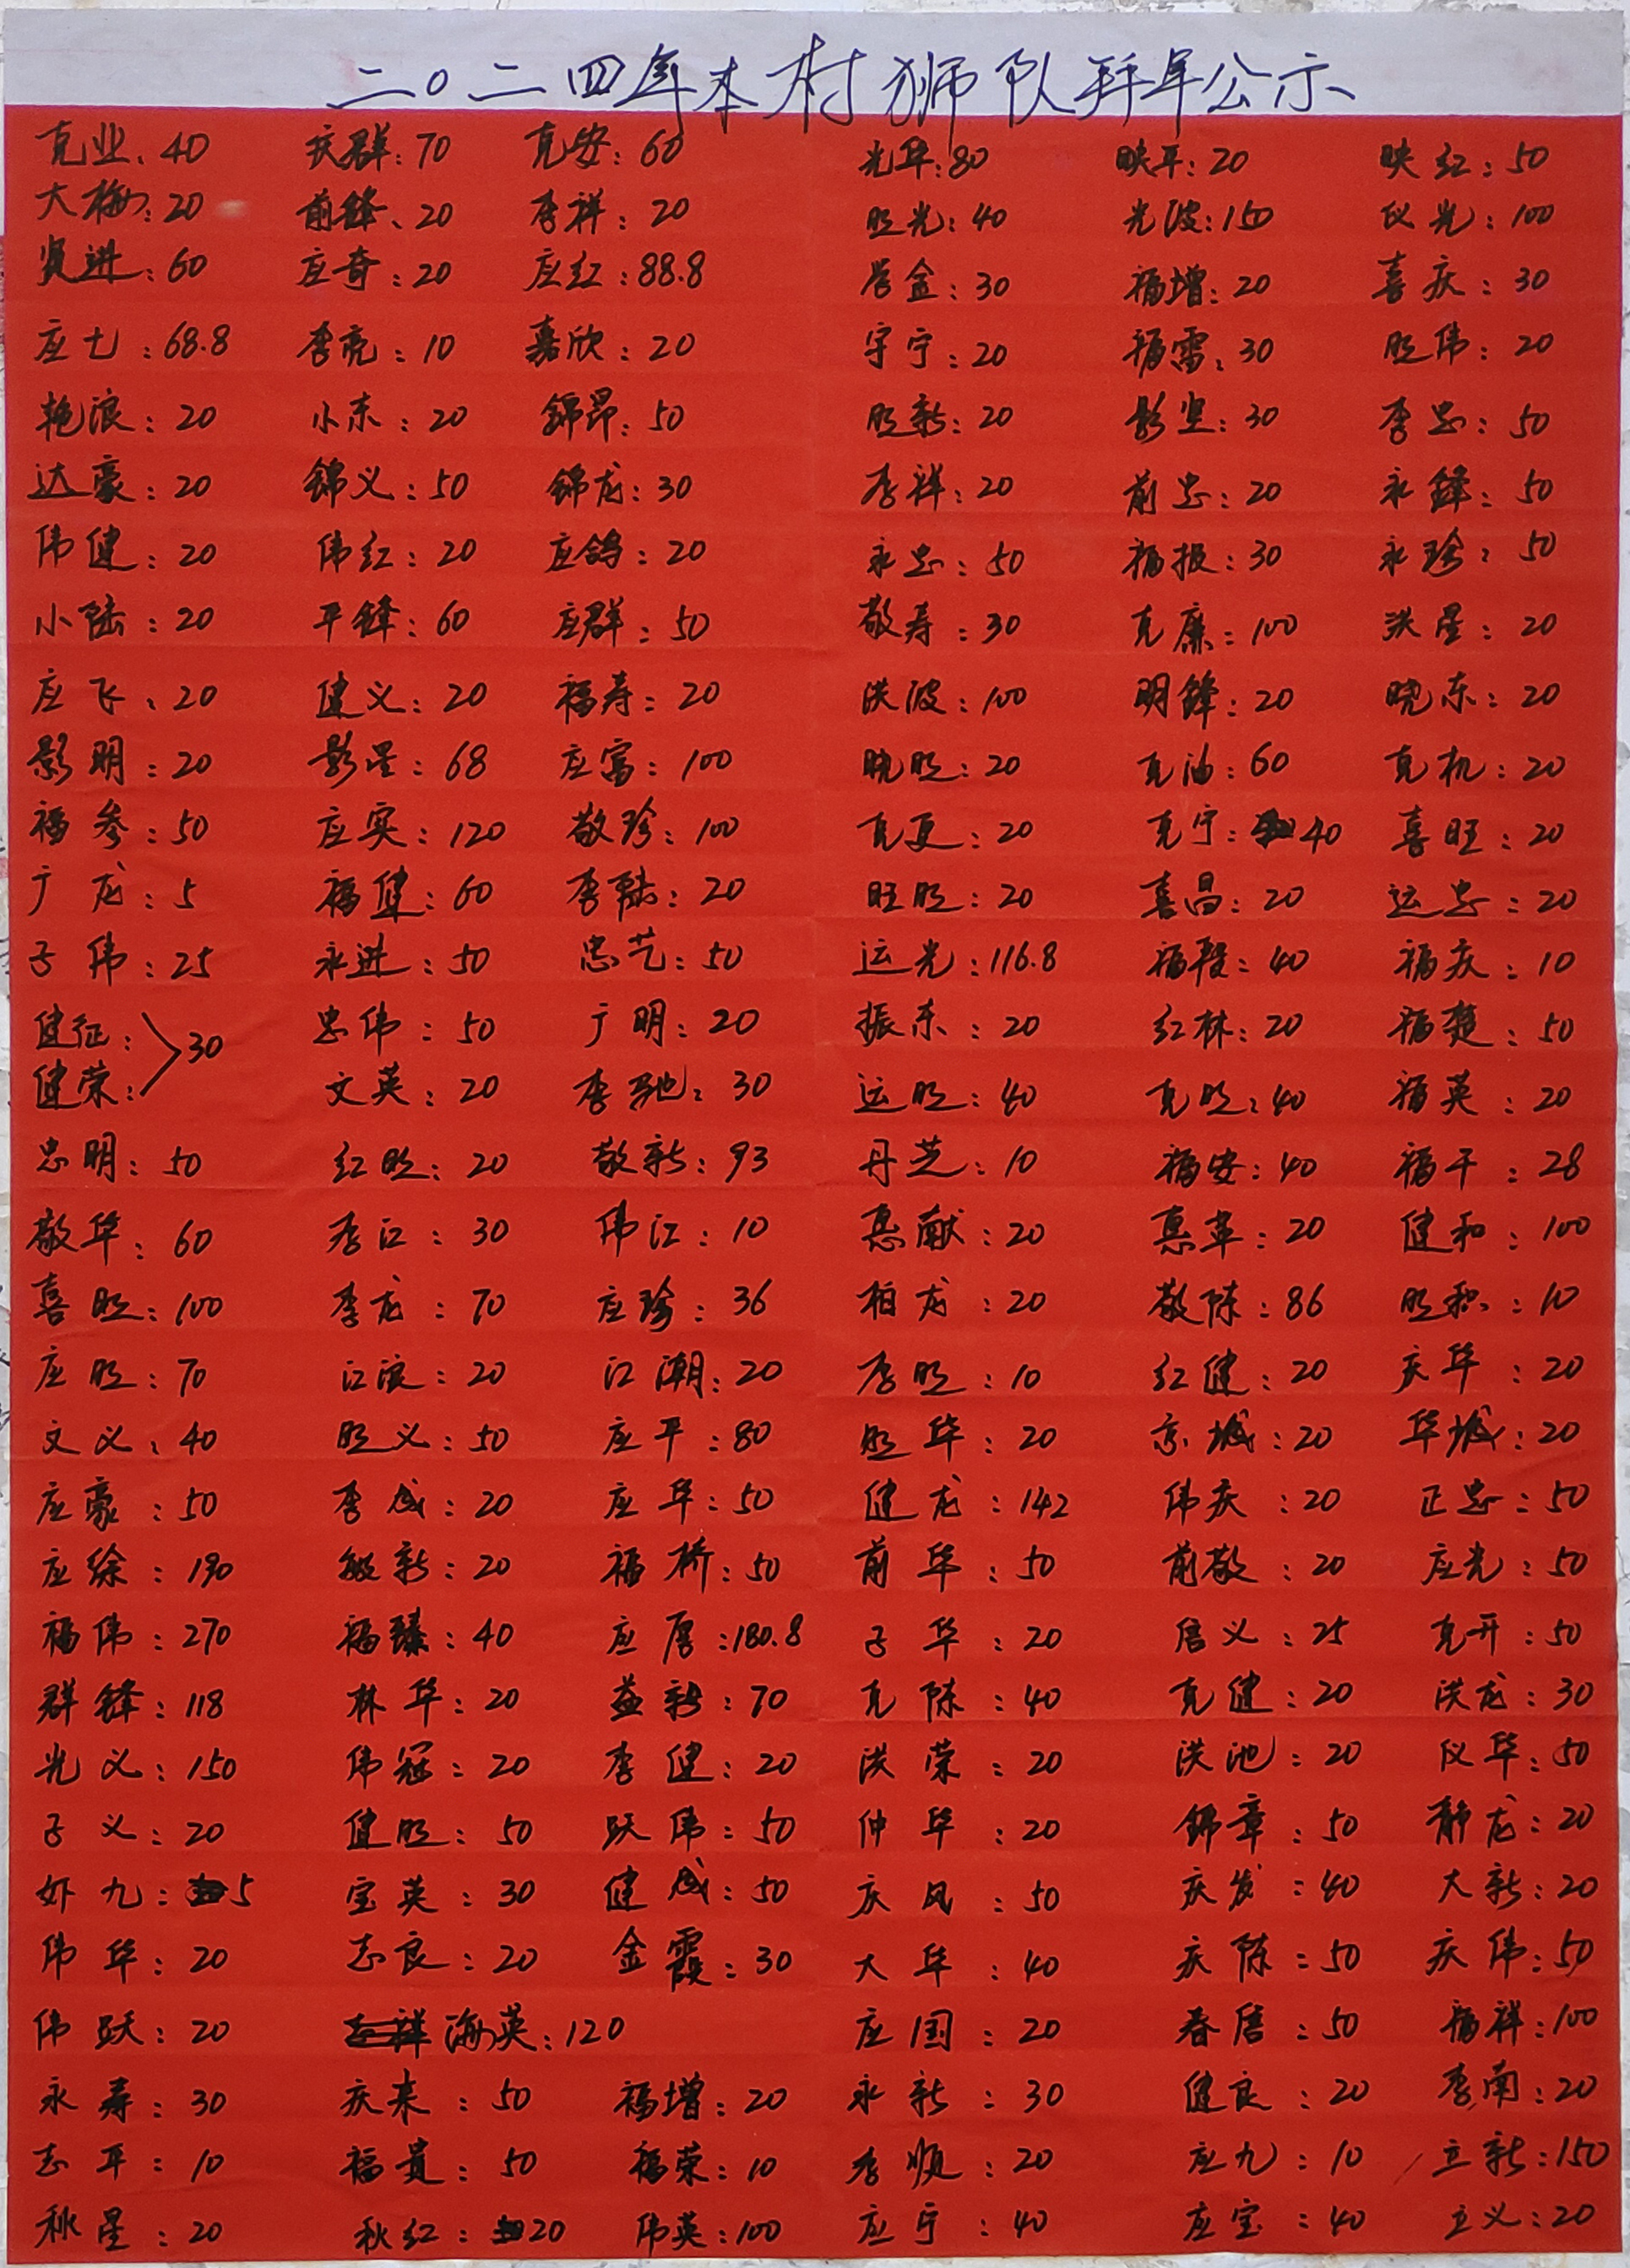 二〇二四年本村狮队拜年公示
克业：40 庆群：70 克安：60 光华：80 映平：20 映红：50
大梅：20 前锋：20 李祥：20 旺光：40 光波：150 仪光：100
贤进：60 应奇：20 应红：88.8 誉金：30 福增：20 喜庆：30
应七：68.8 李亮：10 嘉欣：20 宇宁：20 福雷：30 旺伟：20
艳浪：20 小东：20 錦昂：50 旺新：20 影坚：30 李忠：50
达豪：20 錦义：50 錦龙：30 李祥：20 前忠：20 永鋒：50
伟健：20 伟红：20 应鸽：20 永忠：50 福报：30 永珍：50
小陆：20 平鋒：60 应群：50 敬寿：30 克廉：100 洪星：20
应飞：20 健义：20 福寿：20 洪波：100 明鋒：20 晓东：20
影明：20 影星：68 应富：100 晓旺：20 克油：60 克机：20
福参：50 应实：120 敬珍：100 克更：20 克宁：40 喜旺：20
广龙：5 福健：60 李陆：20 旺旺：20 喜昌：20 运忠：20
子伟：25 永进：50 忠艺：50 运光：116.8 福：40 福庆：10
健征： 30 忠伟：50 广明：20 振东：20 红林：20 福楚：50
健荣： 文英：20 李驰：30 运旺：40 克旺：40 福英：20
忠明：50 红旺：20 敬新：93 丹芝：10 福安：40 福干：28
敬华：60 李江：30 伟江：10 惠献：20 惠革：20 健和：100
喜旺：100 李龙：70 应珍：36 柏龙：20 敬陈：86 旺积：10
应旺：70 江浪：20 江潮：20 李旺：10 红健：20 庆华：20
文义：40 旺义：50 应平：80 旺华：20 京城：20 华城：20
应豪：50 李成：20 应华：50 健龙：142 伟庆：20 正忠：50
应徐：190 敏新：20 福桥：50 前华：50 前敬：20 应光：50
福伟：270 福臻：40 应厚：180.8 子华：20 信义：25 克开：50
群鋒：118 林华：20 益新：70 克陈：40 克健：20 洪龙：30
光义：150 伟冠：20 李健：20 洪荣：20 洪池：20 仪华：50
子义：20 健旺：50 跃伟：50 仲华：20 錦章：50 静龙：20
妚九：5 宝英：30 健成：50 庆风：50 庆发：40 大新：20
伟华：20 志良：20 金霞：30 大华：40 庆陈：50 庆伟：50
伟跃：20 海英：120 应国：20 春信：50 福祥：100
永寿：30 庆来：50 福增：20 永新：30 健良：20 李南：20
志平：10 福贵：50 福荣：10 李顺：20 应九：10 立新：150
秋星：20 秋红：20 伟英：100 应宁：40 应宝：40 立义：20